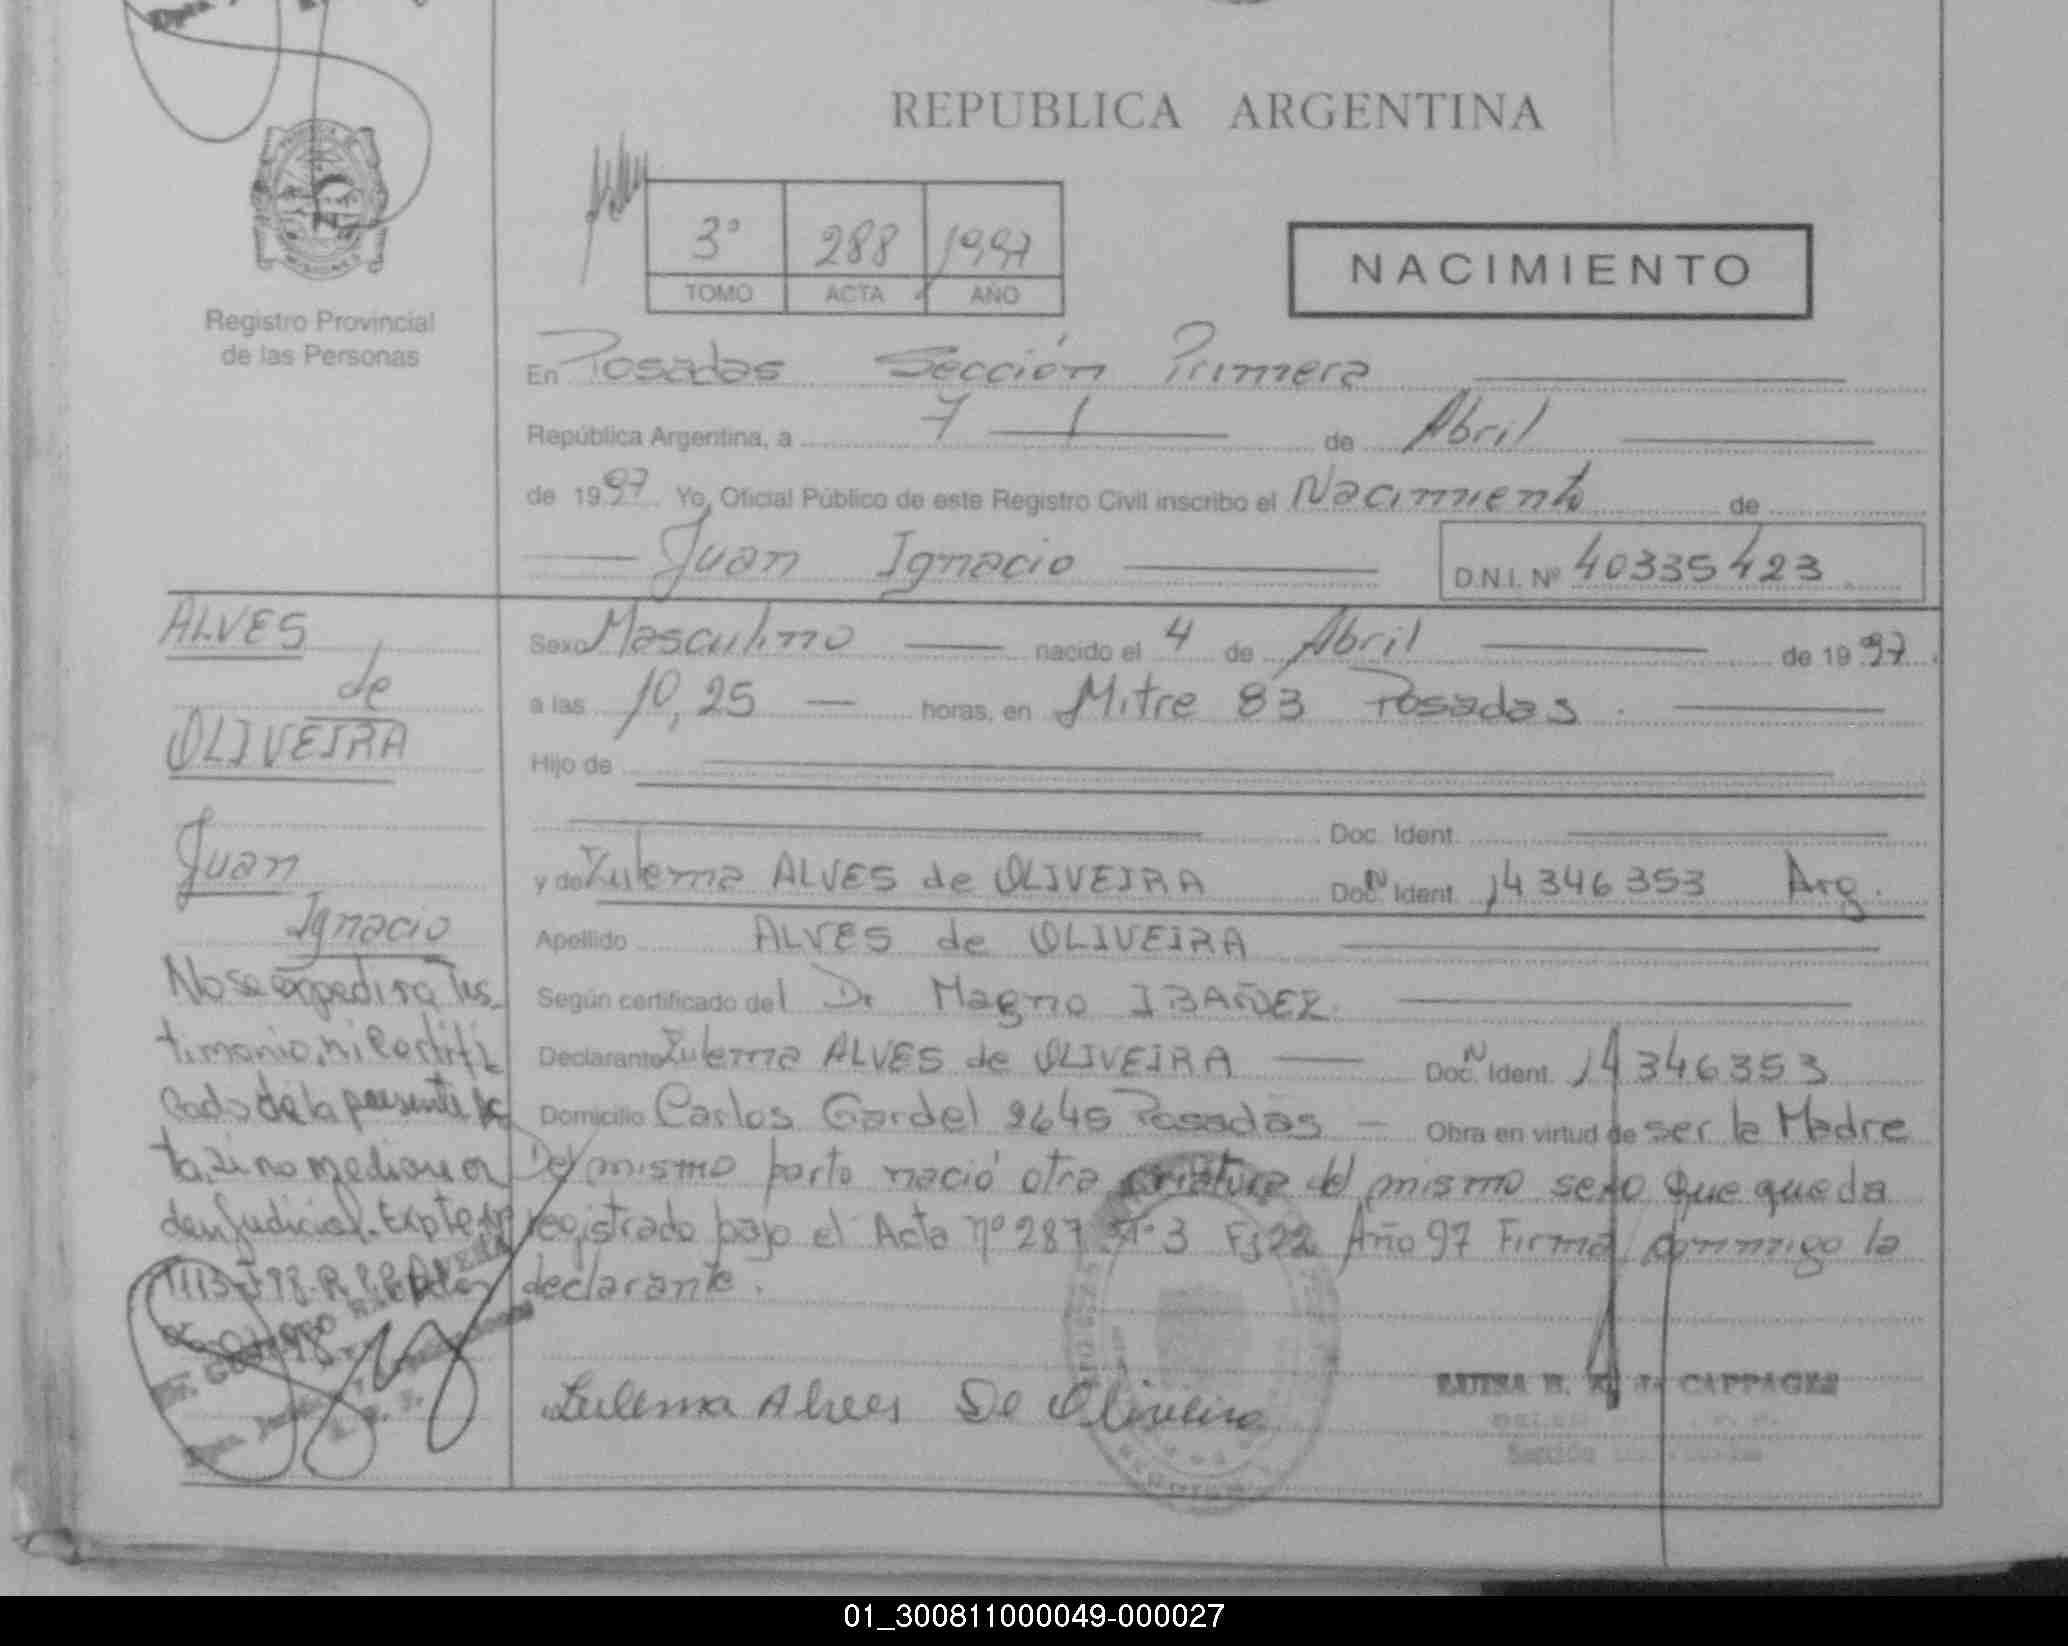 REPUBLICA ARGENTINA
MISIONES
Registro Provincial
de las Personas
3º 288 1997
TOMO ACTA AÑO
NACIMIENTO
En Posadas Sección Primera
República Argentina, a 7 de Abril
de 1997 Yo, Oficial Público de este Registro Civil inscribo el Nacimiento de
Juan Ignacio D.N.I. Nº 40335423
ALVES
de
OLIVEIRA
Juan
Ignacio
Sexo Masculino nacido el 4 de Abril de 1997
a las 10,25 horas, en Mitre 83 Posadas.
Hijo de
Doc. Ident.
y de Zulema ALVES de OLIVEIRA Doc. N Ident. 14346353 Arg.
Apellido ALVES de OLIVEIRA
Según certificado del Dr Magno IBAÑEZ.
Declarante Zulema ALVES de OLIVEIRA Doc. N Ident. 14346353
Domicilio Carlos Gardel 2645 Posadas Obra en virtud de ser la Madre
Del mismo parto nació otra criatura del mismo sexo que queda
registrado bajo el Acta nº 287 Tº 3 Fj 22 Año 97 Firma conmigo la
declarante.
No se expedira Tes-
timonio, ni Certifi
cado de la presente Ac
ta, si no mediare or
den Judicial. Expte
Zulema Alves De Oliveira
LUISA CAPPAGES
Sección
01_300811000049-000027